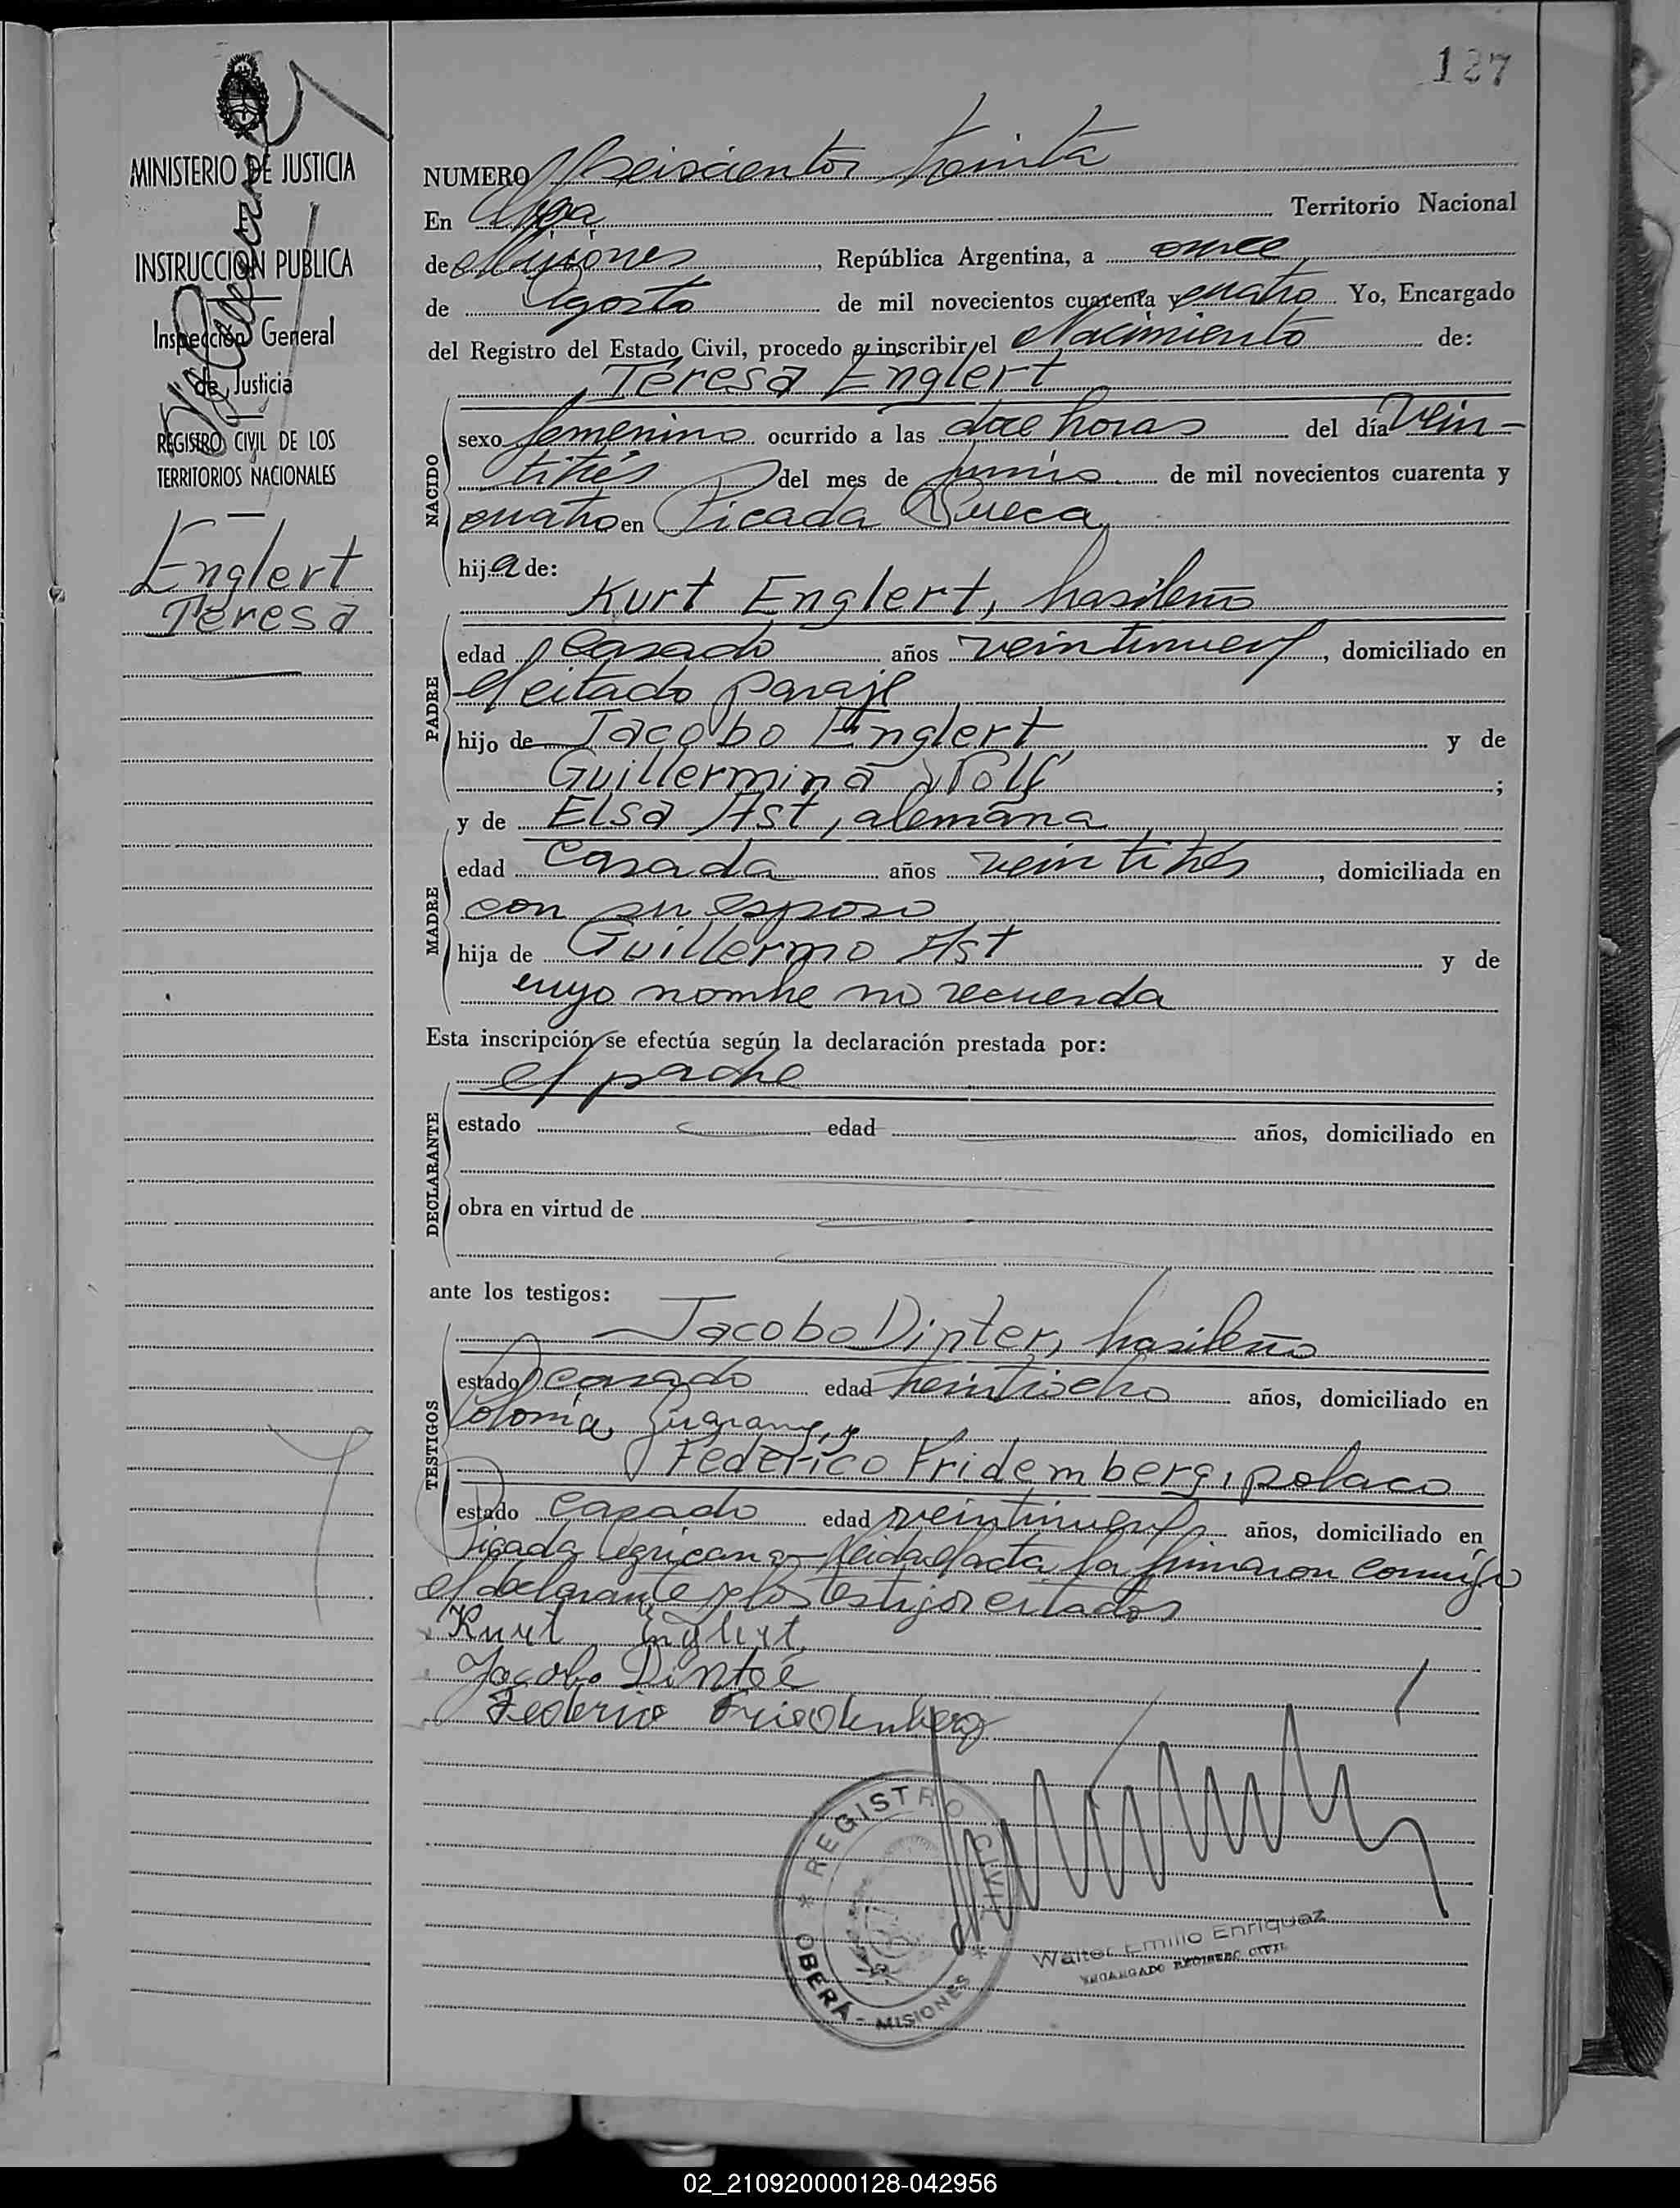 127
MINISTERIO DE JUSTICIA
INSTRUCCION PUBLICA
Inspección General
de Justicia
REGISTRO CIVIL DE LOS
TERRITORIOS NACIONALES
Englert
Teresa
NUMERO Seiscientos treinta
En
Territorio Nacional
de Misiones, República Argentina, a once
de Agosto de mil novecientos cuarenta y cuatro Yo, Encargado
del Registro del Estado Civil, procedo a inscribir el Nacimiento de:
Teresa Englert
NACIDO
sexo femenino ocurrido a las doce horas del día Vein-
titrés del mes de Junio de mil novecientos cuarenta y
cuatro en Picada Sueca
hija de:
PADRE
Kurt Englert, brasileño
edad casado años veintinueve, domiciliado en
el citado paraje
hijo de Jacobo Englert y de
Guillermina Wolf;
MADRE
y de Elsa Ast, alemana
edad casada años veintitrés, domiciliada en
con su esposo
hija de Guillermo Ast y de
cuyo nombre no recuerda
Esta inscripción se efectúa según la declaración prestada por:
DECLARANTE
el padre
estado edad años, domiciliado en
obra en virtud de
ante los testigos:
TESTIGOS
Jacobo Dinter, brasileño
estado casado edad treintiocho años, domiciliado en
Colonia Guarany, y
Federico Fridemberg, polaco
estado casado edad veintinueve años, domiciliado en
Picada Leida el acta la firmaron conmigo
el declarante y los testigos citados
Kurt Englert
Jacobo Dinter
Federico Friedenberg
REGISTRO CIVIL
OBERÁ - MISIONES
Walter Emilio Enriquez
ENCARGADO REGISTRO CIVIL
02_210920000128-042956